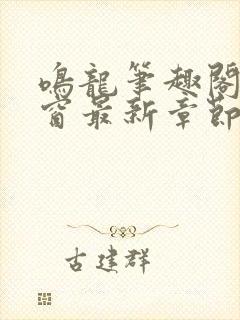 鳴龍筆趣閣
窗最新章節
古建群